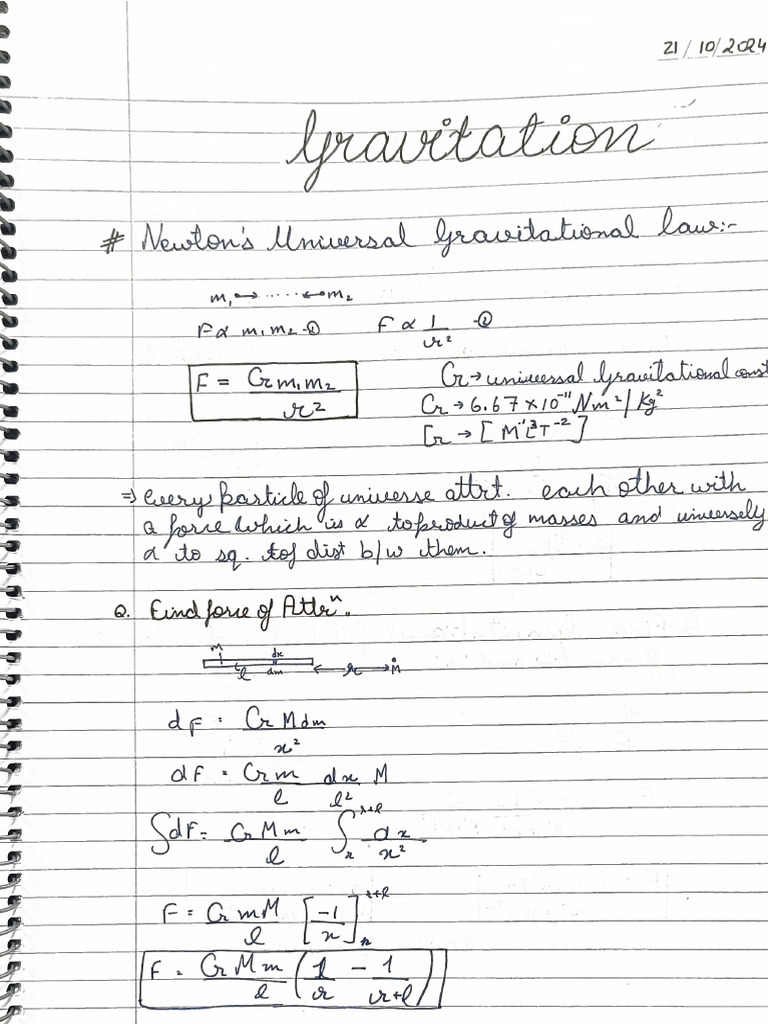 21/10/2024
Gravitation
# Newton's Universal Gravitational law:-
m₁ •→ ..... ←• m₂
F ∝ m₁ m₂ -① F ∝ 1/r² -②
F = G m₁ m₂ / r² G → universal Gravitational const
G → 6.67 × 10⁻¹¹ Nm²/Kg²
G → [M⁻¹L³T⁻²]
⇒ Every particle of universe attrt. each other with
a force which is ∝ to product of masses and inversely
∝ to sq. of dist b/w them.
Q. Find force of Attrⁿ.
m dx
l dm r M
dF = G M dm / x²
dF = G m / l dx / l² M
∫dF = G M m / l ∫ᵣ^(r+l) dx / x²
F = G m M / l [-1/x]ᵣ^(r+l)
F = G M m / l (1/r - 1/(r+l))